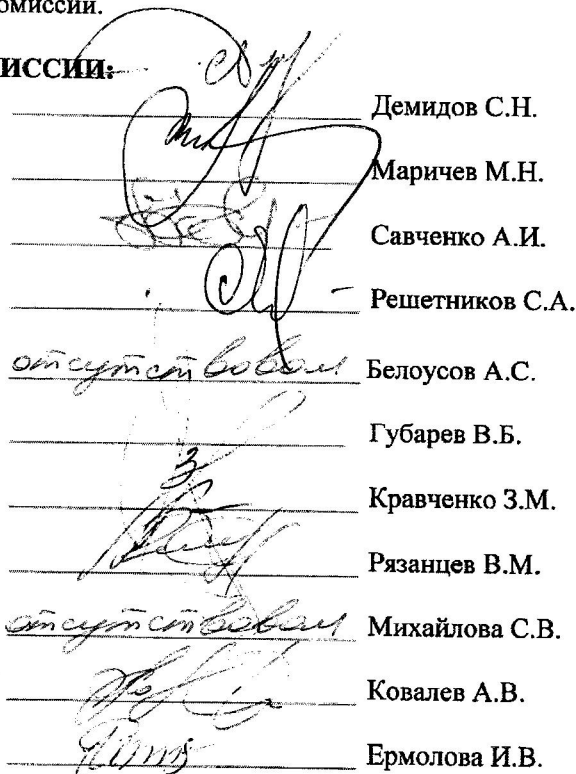 омиссии.
ИССИИ:
Демидов С.Н.
Маричев М.Н.
Савченко А.И.
Решетников С.А.
отсутствовал Белоусов А.С.
Губарев В.Б.
Кравченко З.М.
Рязанцев В.М.
отсутствовал Михайлова С.В.
Ковалев А.В.
Ермолова И.В.